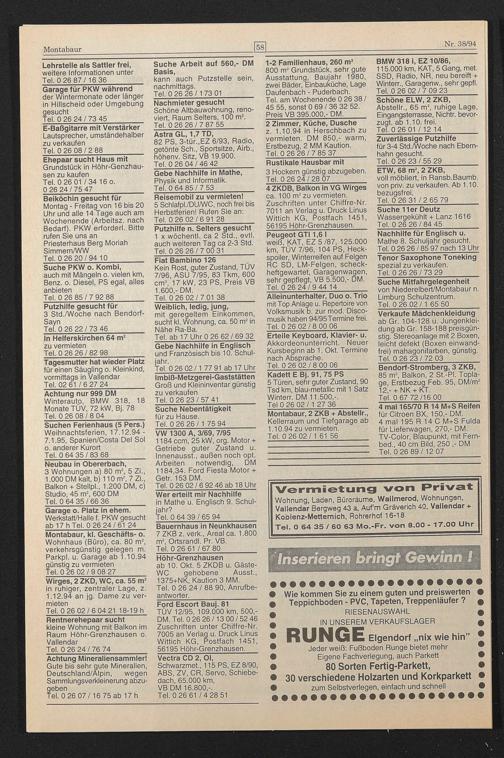 Montabaur
58
Nr. 38/94
Lehrstelle als Sattler frei,
weitere Informationen unter
Tel. 0 26 87 / 16 36
Garage für PKW während
der Wintermonate oder länger
in Hillscheid oder Umgebung
gesucht
Tel. 0 26 24 / 73 45
E-Baßgitarre mit Verstärker
Lautsprecher, umständehalber
zu verkaufen
Tel. 0 26 08 / 2 88
Ehepaar sucht Haus mit
Grundstück in Höhr-Grenzhausen
zu kaufen
Tel. 0 26 01 / 34 16 o.
0 26 24 / 75 47
Beiköchin gesucht für
Montag - Freitag von 16 bis 20
Uhr und alle 14 Tage auch am
Wochenende (Arbeitsz. nach
Bedarf). PKW erforderl. Bitte
rufen Sie uns an
Priesterhaus Berg Moriah
Simmern/WW
Tel. 0 26 20 / 94 10
Suche PKW o. Kombi,
auch mit Mängeln o. vielen km,
Benz. o. Diesel, PS egal, alles
anbieten
Tel. 0 26 85 / 7 92 88
Putzhilfe gesucht für
3 Std./Woche nach Bendorf-
Sayn
Tel. 0 26 22 / 73 46
In Helferskirchen 64 m²
zu vermieten
Tel. 0 26 26 / 82 98
Tagesmutter hat wieder Platz
für einen Säugling o. Kleinkind,
vormittags in Vallendar
Tel. 02 61 / 6 27 24
Achtung nur 999 DM
Winterauto, BMW 318, 18
Monate TÜV, 72 kW, Bj. 78
Tel. 0 26 08 / 8 04
Suchen Ferienhaus (5 Pers.)
Weihnachtsferien, 17.12.94 -
7.1.95, Spanien/Costa Del Sol
o. anderer Kurort
Tel. 0 64 35 / 83 68
Neubau in Obererbach,
3 Wohnungen a) 80 m², 5 Zi.,
1.000 DM kalt, b) 110 m², 7 Zi.,
Balkon + Stellpl., 1.200 DM, c)
Studio, 45 m², 600 DM
Tel. 0 64 35 / 66 95
Garage o. Platz in ehem.
Werkstatt/Halle f. PKW gesucht
ab 17 h Tel. 0 26 24 / 61 24
Montabaur, kl. Geschäfts- o.
Wohnhaus (Büro), ca. 80 m²,
verkehrsgünstig gelegen m.
Parkpl. u. Garage ab 1.10.94
günstig zu vermieten
Tel. 0 26 02 / 9 08 27
Wirges, 2 ZKD, WC, ca. 55 m²
in ruhiger, zentraler Lage, z.
1.12.94 an jg. Dame zu vermieten
Tel. 0 26 02 / 6 04 21 18-19 h
Rentnerehepaar sucht
kleine Wohnung mit Balkon im
Raum Höhr-Grenzhausen o.
Vallendar
Tel. 0 26 24 / 76 74
Achtung Mineraliensammler!
Gute bis sehr gute Mineralien,
Deutschland/Alpin, wegen
Sammlungsverkleinerung abzugeben
Tel. 0 26 07 / 16 75 ab 17 h
Suche Arbeit auf 560,- DM
Basis,
kann auch Putzstelle sein,
nachmittags.
Tel. 0 26 26 / 1 73 01
Nachmieter gesucht
Schöne Altbauwohnung, renoviert,
Raum Selters, 100 m².
Tel. 0 26 26 / 7 87 55
Astra GL, 1,7 TD,
82 PS, 3-tür., EZ 6/93, Radio,
getönte Sch., Sportsitze, Airb.,
höhenv. Sitz, VB 19.900.
Tel. 0 26 04 / 46 42
Gebe Nachhilfe in Mathe,
Physik und Informatik.
Tel. 0 64 85 / 7 53
Reisemobil zu vermieten!
5 Schlafpl./DU/WC, noch frei bis
Herbstferien! Rufen Sie an:
Tel. 0 26 02 / 6 91 28
Putzhilfe n. Selters gesucht
1 x wöchentl. ca 2 Std., evtl.
auch weiteren Tag ca 2-3 Std.
Tel. 0 26 26 / 7 00 31
Fiat Bambino 126
Kein Rost, guter Zustand, TÜV
7/96, ASU 7/95, 83 Tkm, 600
cm³, 17 kW, 23 PS, Preis VB
1.600,- DM.
Tel. 0 26 02 / 7 01 38
Weiblich, ledig, jung,
mit geregeltem Einkommen,
sucht kl. Wohnung, ca. 50 m² in
Nähe Ra-Ba.
Tel. ab 17 Uhr 0 26 62 / 69 32
Gebe Nachhilfe in Englisch
und Französisch bis 10. Schuljahr.
Tel. 0 26 02 / 1 77 91 ab 17 Uhr
Imbiß-Metzgerei-Gaststätten
Groß und Kleininventar günstig
zu verkaufen.
Tel. 0 26 23 / 57 41
Suche Nebentätigkeit
für zu Hause.
Tel. 0 26 26 / 1 75 94
VW 1300 A, 3/69, 7/95
1184 ccm, 25 kW, org. Motor +
Getriebe guter Zustand u.
Innenausst., außen noch opt.
Arbeiten notwendig, DM
1184,34. Ford Fiesta Motor +
Getr. 153 DM.
Tel. 0 26 02 / 6 92 46 ab 18 Uhr
Wer erteilt mir Nachhilfe
in Mathe u. Englisch 9. Schuljahr?
Tel. 0 64 39 / 65 94
Bauernhaus in Neunkhausen
7 ZKB z. verk., Areal ca. 1.800
m², Ortsrandl. Pr. VB.
Tel. 0 26 61 / 67 80
Höhr-Grenzhausen
ab 10. Okt. 5 ZKDB u. Gäste-
WC gehobene Ausst.,
1375+NK, Kaution 3 MM.
Tel. 0 26 24 / 88 90, Anrufbeantworter.
Ford Escort Bauj. 81
TÜV 12/95, 109.000 km, 500,-
DM. Tel. 0 26 26 / 13 00 / 52 46
Zuschriften unter Chiffre-Nr.
7005 an Verlag u. Druck Linus
Wittich KG, Postfach 1451,
56195 Höhr-Grenzhausen.
Vectra CD 2, 0l,
Schwarzmet., 115 PS, EZ 8/90,
ABS, ZV, CR, Servo, Schiebedach,
65.000 km,
VB DM 16.800,-.
Tel. 0 26 61 / 4 28 51
1-2 Familienhaus, 260 m²
800 m² Grundstück, sehr gute
Ausstattung, Baujahr 1980,
zwei Bäder, Einbauküche, Lage
Daufenbach - Puderbach.
Tel. am Wochenende 0 26 38 /
45 55, sonst 0 69 / 36 32 52.
Preis VB 395.000,- DM.
2 Zimmer, Küche, Dusche
z. 1.10.94 in Herschbach zu
vermieten. DM 850,- warm,
Erstbezug, 2 MM Kaution.
Tel. 0 26 26 / 7 85 37
Rustikale Hausbar mit
3 Hockern günstig abzugeben.
Tel. 0 26 24 / 28 07
4 ZKDB, Balkon in VG Wirges
ca. 100 m² zu vermieten.
Zuschriften unter Chiffre-Nr.
7011 an Verlag u. Druck Linus
Wittich KG, Postfach 1451,
56195 Höhr-Grenzhausen.
Peugeot GTI 1,6 l
weiß, KAT, EZ 5 /87, 125.000
km, TÜV 7/96, 104 PS, Heckspoiler,
Winterreifen auf Felgen
RC SD, LM-Felgen, scheckheftgewartet,
Garagenwagen,
sehr gepflegt, VB 5.500,- DM.
Tel. 0 26 24 / 9 44 14
Alleinunterhalter, Duo o. Trio
mit Top Anlage u. Repertoire von
Volksmusik b. zur mod. Discomusik
haben 94/95 Termine frei.
Tel. 0 26 02 / 8 00 06
Erteile Keyboard, Klavier- u.
Akkordeonunterricht. Neuer
Kursbeginn ab 1. Okt. Termine
nach Absprache.
Tel. 0 26 02 / 8 00 06
Kadett E Bj. 91, 75 PS
5 Türen, sehr guter Zustand, 90
Tsd km, blau-metallic mit 1 Satz
Winterr. DM 11.500,-.
Tel. 0 26 02 / 1 27 36
Montabaur, 2 ZKB + Abstellr.,
Kellerraum und Tiefgarage ab
1.10.94 zu vermieten.
Tel. 0 26 02 / 1 61 56
BMW 318 i, EZ 10/86,
115.000 km, KAT, 5 Gang, met.
SSD, Radio, NR, neu bereift +
Winterr., Garagenw., sehr gepfl.
Tel. 0 26 02 / 7 09 23
Schöne ELW, 2 ZKB,
Abstellr., 65 m², ruhige Lage,
Eingangsterrasse, Nichtr. bevorzugt,
ab 1.10. frei.
Tel. 0 26 01 / 12 14
Zuverlässige Putzhilfe
für 3-4 Std./Woche nach Ebernhahn
gesucht.
Tel. 0 26 23 / 55 29
ETW, 68 m², 2 ZKB,
voll möbliert, in Ransb.Baumb.
von priv. zu verkaufen. Ab 1.10.
bezugsfrei.
Tel. 0 26 31 / 2 65 79
Suche 11er Deutz
Wassergekühlt + Lanz 1616
Tel. 0 26 26 / 84 45
Suche Nachhilfe/Englisch u.
Mathe 8. Schuljahr gesucht.
Tel. 0 26 26 / 85 97 nach 13 Uhr
Tenor Saxophone Toneking
spezial zu verkaufen.
Tel. 0 26 26 / 73 29
Suche Mitfahrgelegenheit
von Niederelbert/Montabaur n.
Limburg Schulzentrum.
Tel. 0 26 02 / 1 65 50
Verkaufe Mädchenkleidung
ab Gr. 104-128 u. Jungenkleidung
ab Gr. 158-188 preisgünstig.
Stereoanlage mit 2 Boxen
leicht defekt (Boxen einwandfrei)
mahagonifarben, günstig.
Tel. 0 26 23 / 72 03
Bendorf-Stromberg, 3 ZKB,
85 m², Balkon, 2 St.-Pl. Toplage,
Erstbezug Feb. 95, DM/m²
12,- + NK + KT.
Tel. 0 67 72 / 16 00
4 mal 165/70 R 14 M+S Reifen
für Citroen BX, 150,- DM.
4 mal 195 R 14 C M+S Fulda
für Lieferwagen, 270,- DM.
TV-Color, Blaupunkt, mit Fernbed.,
40 cm Bild, 250 ,- DM
Tel. 0 26 89 / 12 07
Vermietung von Privat
Wohnung, Laden, Büroräume, Wallmerod, Wohnungen,
Vallendar Bergweg 43 a, Auf'm Gräverich 40, Vallendar +
Koblenz-Metternich, Rohrerhof 16-18
Tel. 0 64 35 / 60 63 Mo.-Fr. von 8.00 - 17.00 Uhr
Inserieren bringt Gewinn !
Wie kommen Sie zu einem guten und preiswerten
Teppichboden - PVC, Tapeten, Treppenläufer ?
RIESENAUSWAHL
IN UNSEREM VERKAUFSLAGER
RUNGE Elgendorf „nix wie hin"
Jeder weiß: Fußboden Runge bietet mehr
Eigene Fachverlegung, auch Parkett
80 Sorten Fertig-Parkett,
30 verschiedene Holzarten und Korkparkett
zum Selbstverlegen, einfach und schnell